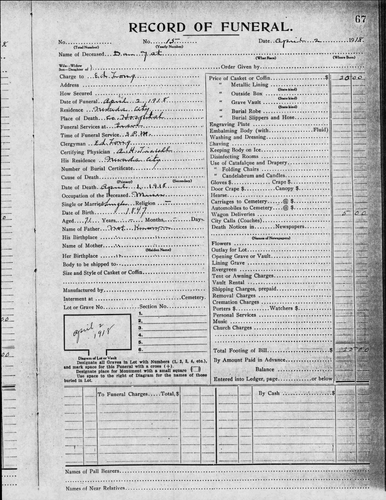 67
RECORD OF FUNERAL.
No. No. 15 Date April 2 1918
(Total Number) (Yearly Number)
Name of Deceased
(What Race) (Where Born)
Charge to Order Given by
Address
How Secured
Date of Funeral April 2, 1918
Residence Nevada City
Place of Death Co. Hospital
Funeral Services at
Time of Funeral Service 2 P.M.
Clergyman
Certifying Physician
His Residence Nevada City
Number of Burial Certificate
Cause of Death
Date of Death April 1, 1918
Occupation of the Deceased Miner
Single or Married Single Religion
Date of Birth 1847
Aged 71 Years, Months, Days
Name of Father Not Known
His Birthplace
Name of Mother "
(Maiden Name)
Her Birthplace "
Body to be shipped to
Size and Style of Casket or Coffin
Manufactured by
Interment at Cemetery.
Lot or Grave No. Section No.
1.
2.
3.
4.
5.
April 2
1918
Diagram of Lot or Vault
Designate all Graves in Lot with Numbers (1, 2, 3, 4, etc.),
and mark space for this Funeral with a cross (+).
Designate place for Monument with a small square
Use space to right of Diagram for names of those
buried in Lot.
Price of Casket or Coffin $ 20 00
" Metallic Lining
" Outside Box
" Grave Vault
" Burial Robe
" Burial Slippers and Hose
Engraving Plate
Embalming Body (with Fluid)
Washing and Dressing
Shaving
Keeping Body on Ice
Disinfecting Rooms
Use of Catafalque and Drapery
" Folding Chairs
" Candelabrum and Candles
Gloves $ Crape $
Door Crape $ Canopy $
Hearse
Carriages to Cemetery @ $
Automobiles to Cemetery @ $
Wagon Deliveries 5 00
City Calls (Coaches)
Death Notices in Newspapers
(Names of Newspapers)
Flowers
Outlay for Lot
Opening Grave or Vault
Lining Grave
Evergreens
Tent or Awning Charges
Vault Rental
Shipping Charges, prepaid
Removal Charges
Cremation Charges
Porters $ Watchers $
Personal Services
Music
Church Charges
Total Footing of Bill
By Amount Paid in Advance
Balance
Entered into Ledger, page or below
To Funeral Charges, Total $ By Cash $
Names of Pall Bearers
Names of Near Relatives